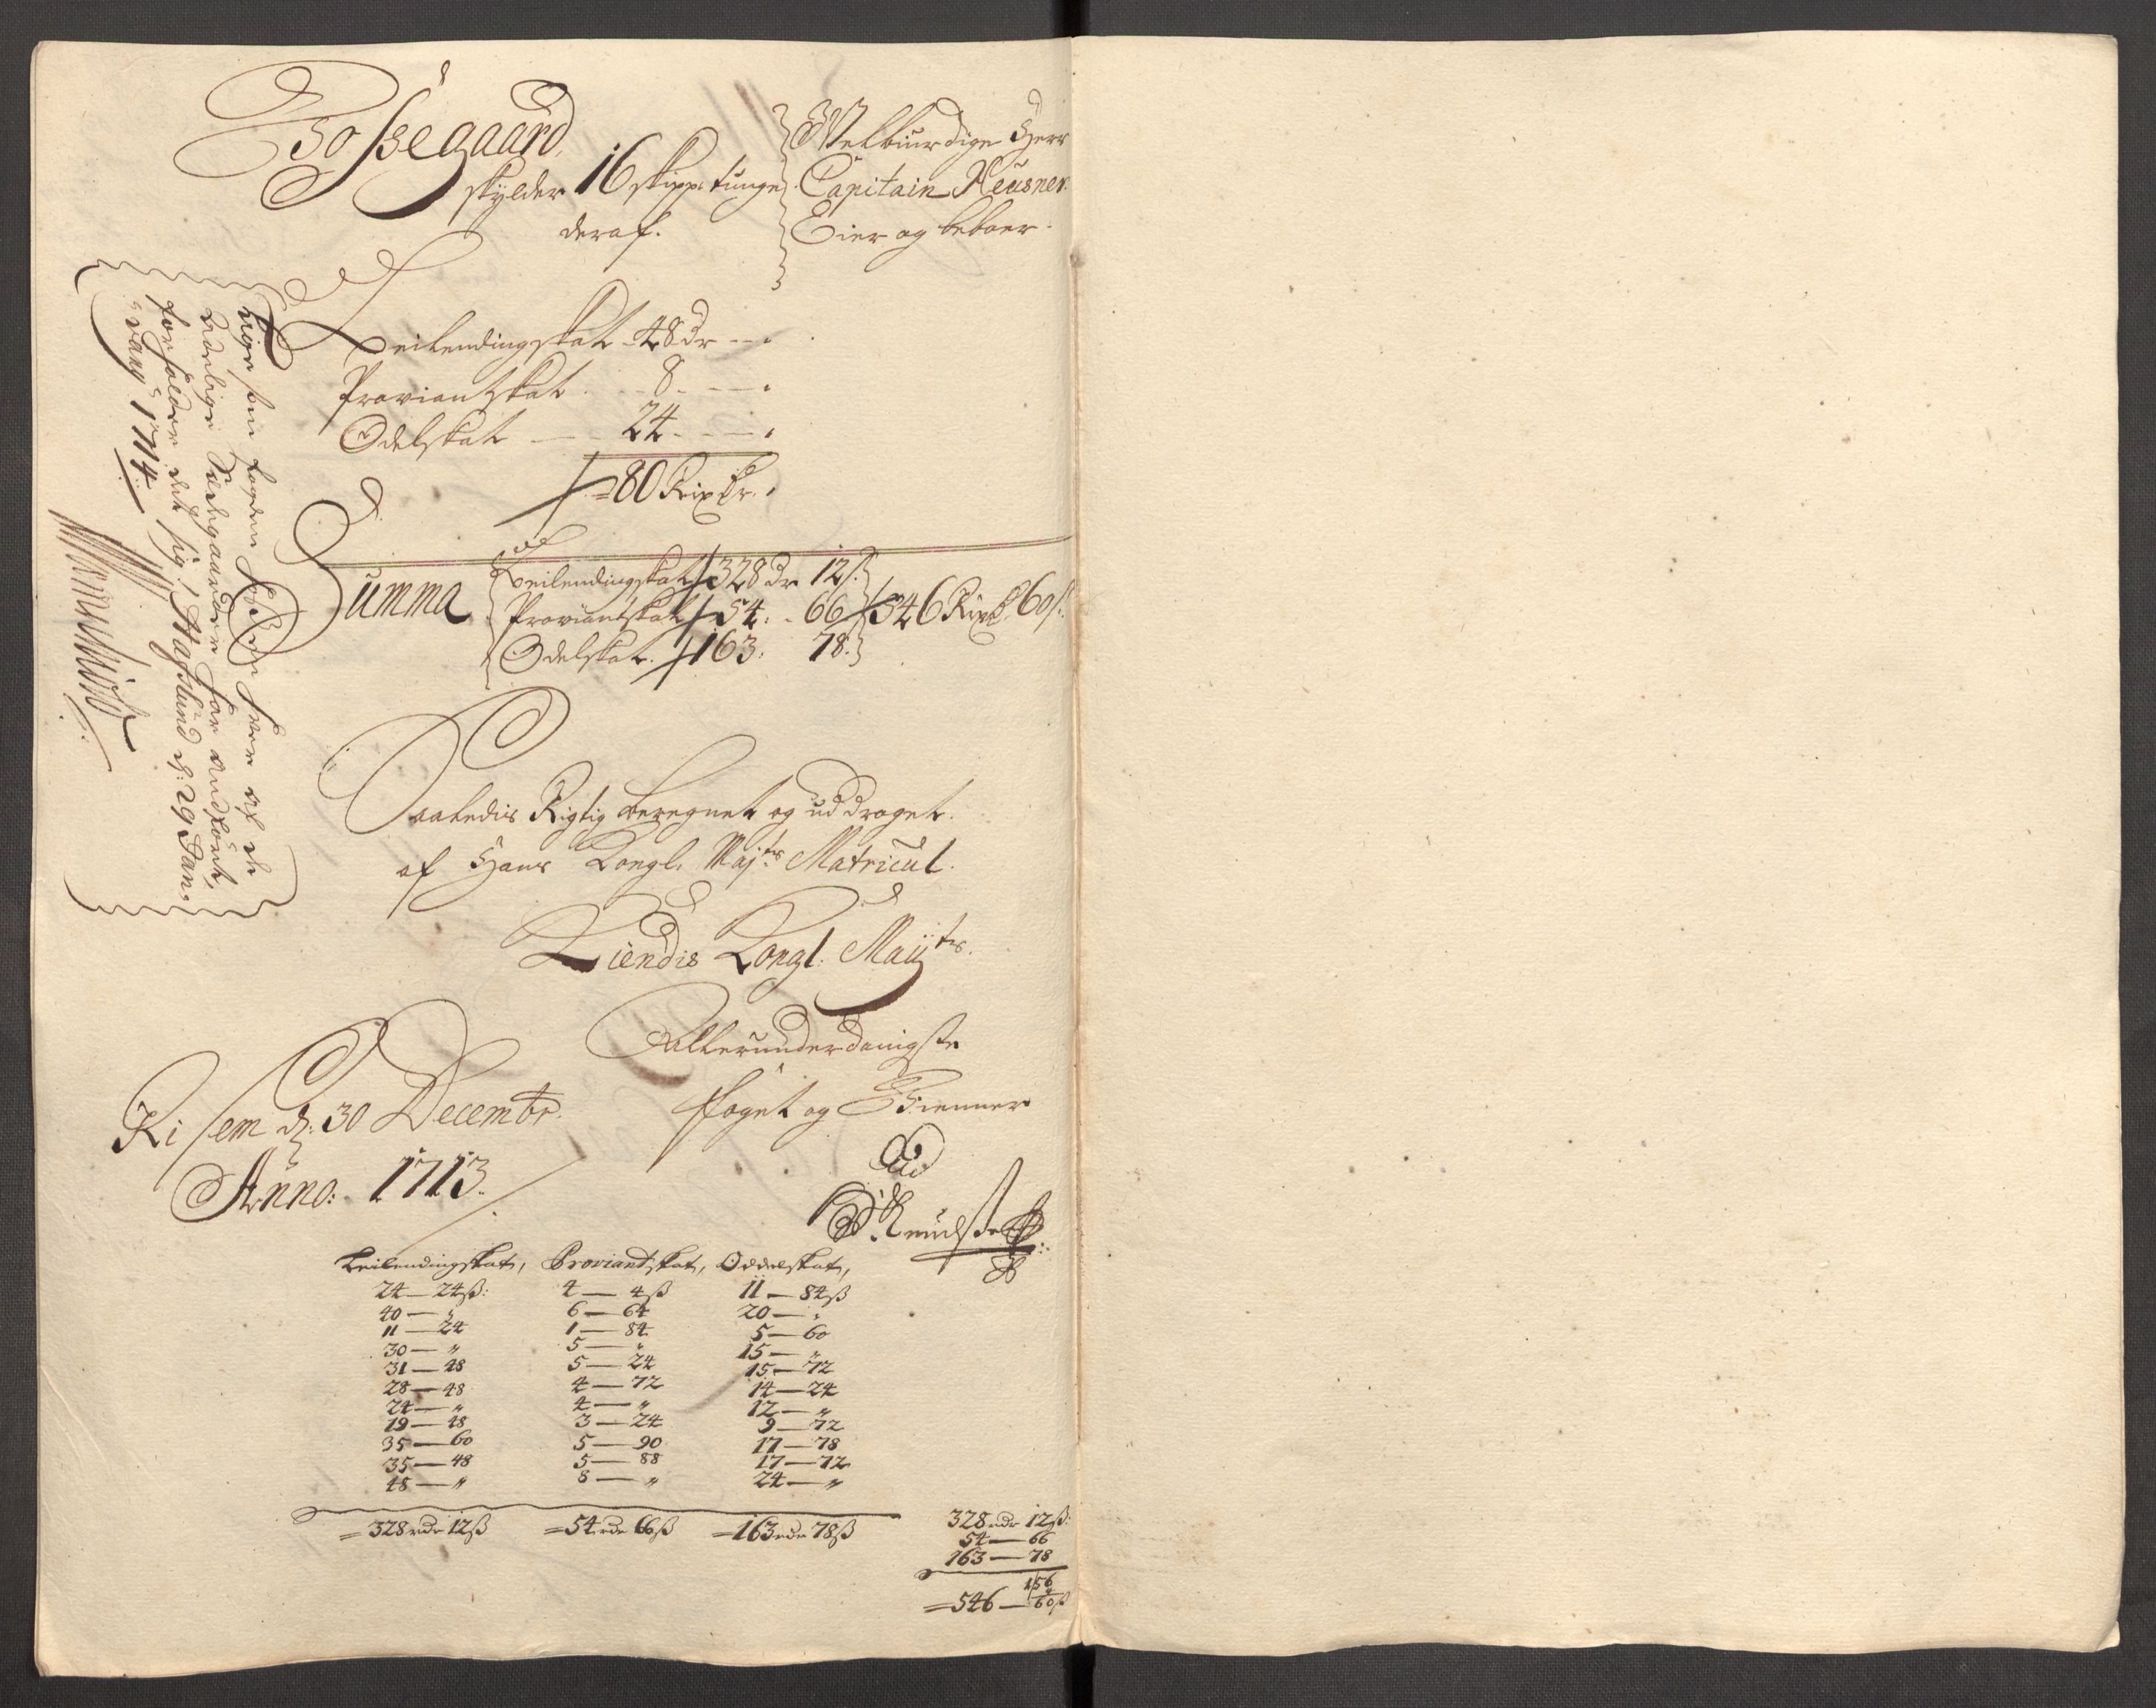 Bossegaard
skylder 16 skipp: tunge
deraf.
Welbiurdige Herr
Capitain Heusner
Eier og beboer.
Leilendingskat 48 dr -
Proviantskat 8 -
Odelskat 24 -
80 Rixdr.
Summa
Leilendingskat 328 dr 12 ß.
Proviantskat 54: 66
Odelskat. 163: 78.
546 Rixdr 60 ß.
Saaledis Rigtig beregnet og uddraget
af Hans Kongl. Maj:ts Matricul.
Deris Kongl: Maij:ts
Allerunderdanigste
foget og Tienner
Risem d: 30 Decembr.
Anno: 1713.
Leilendingskat, Proviantskat, Oddelskat,
24—24ß: 4—4ß 11—84ß
40—„ 6—64 20—„
11—24 1—84 5—60
30—„ 5—„ 15—„
31—48 5—24 15—72
28—48 4—72 14—24
24—„ 4—„ 12—„
19—48 3—24 9—72
35—60 5—90 17—78
35—48 5—88 17—72
48—„ 8—„ 24—„
=328 rdr 12ß =54 rdr 66ß =163 rdr 78ß
328 rdr 12ß:
54—66
163—78
156
=546—60ß
forholder det sig. Hafslund d: 29 Jan
1714